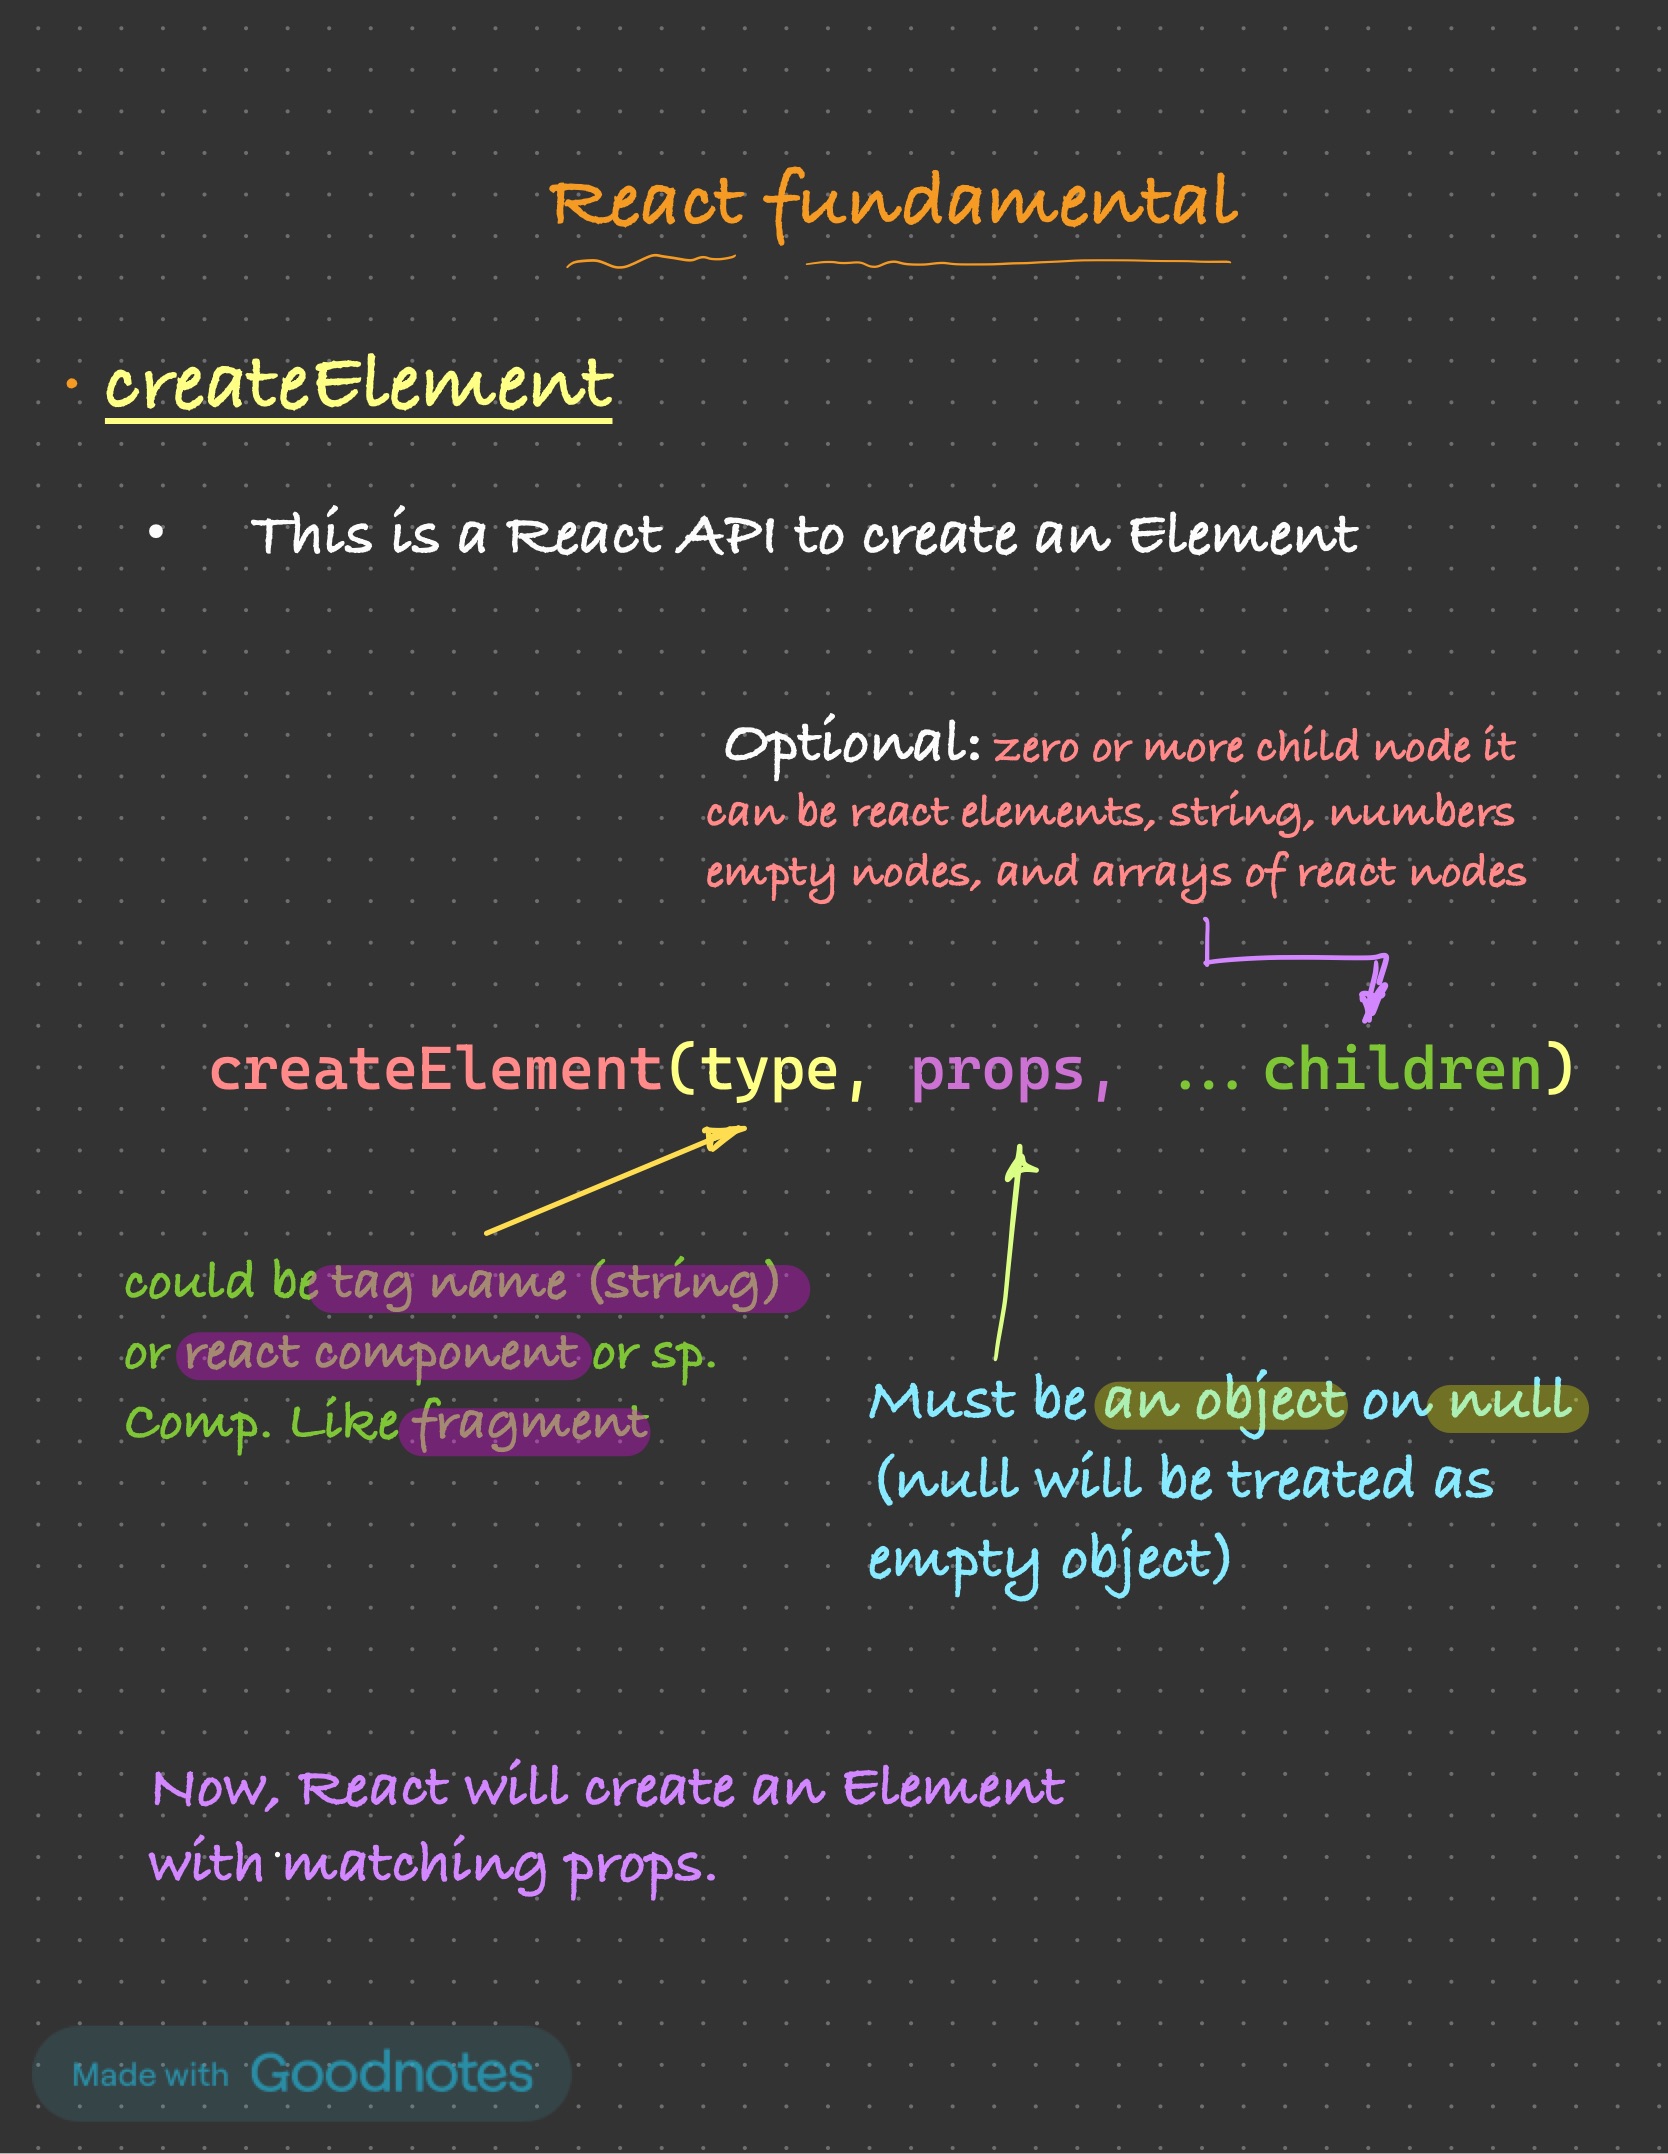 React fundamental
• createElement
• This is a React API to create an Element
Optional: zero or more child node it
can be react elements, string, numbers
empty nodes, and arrays of react nodes
createElement(type, props, ... children)
could be tag name (string)
or react component or sp.
Comp. Like fragment
Must be an object on null
(null will be treated as
empty object)
Now, React will create an Element
with matching props.
Made with Goodnotes